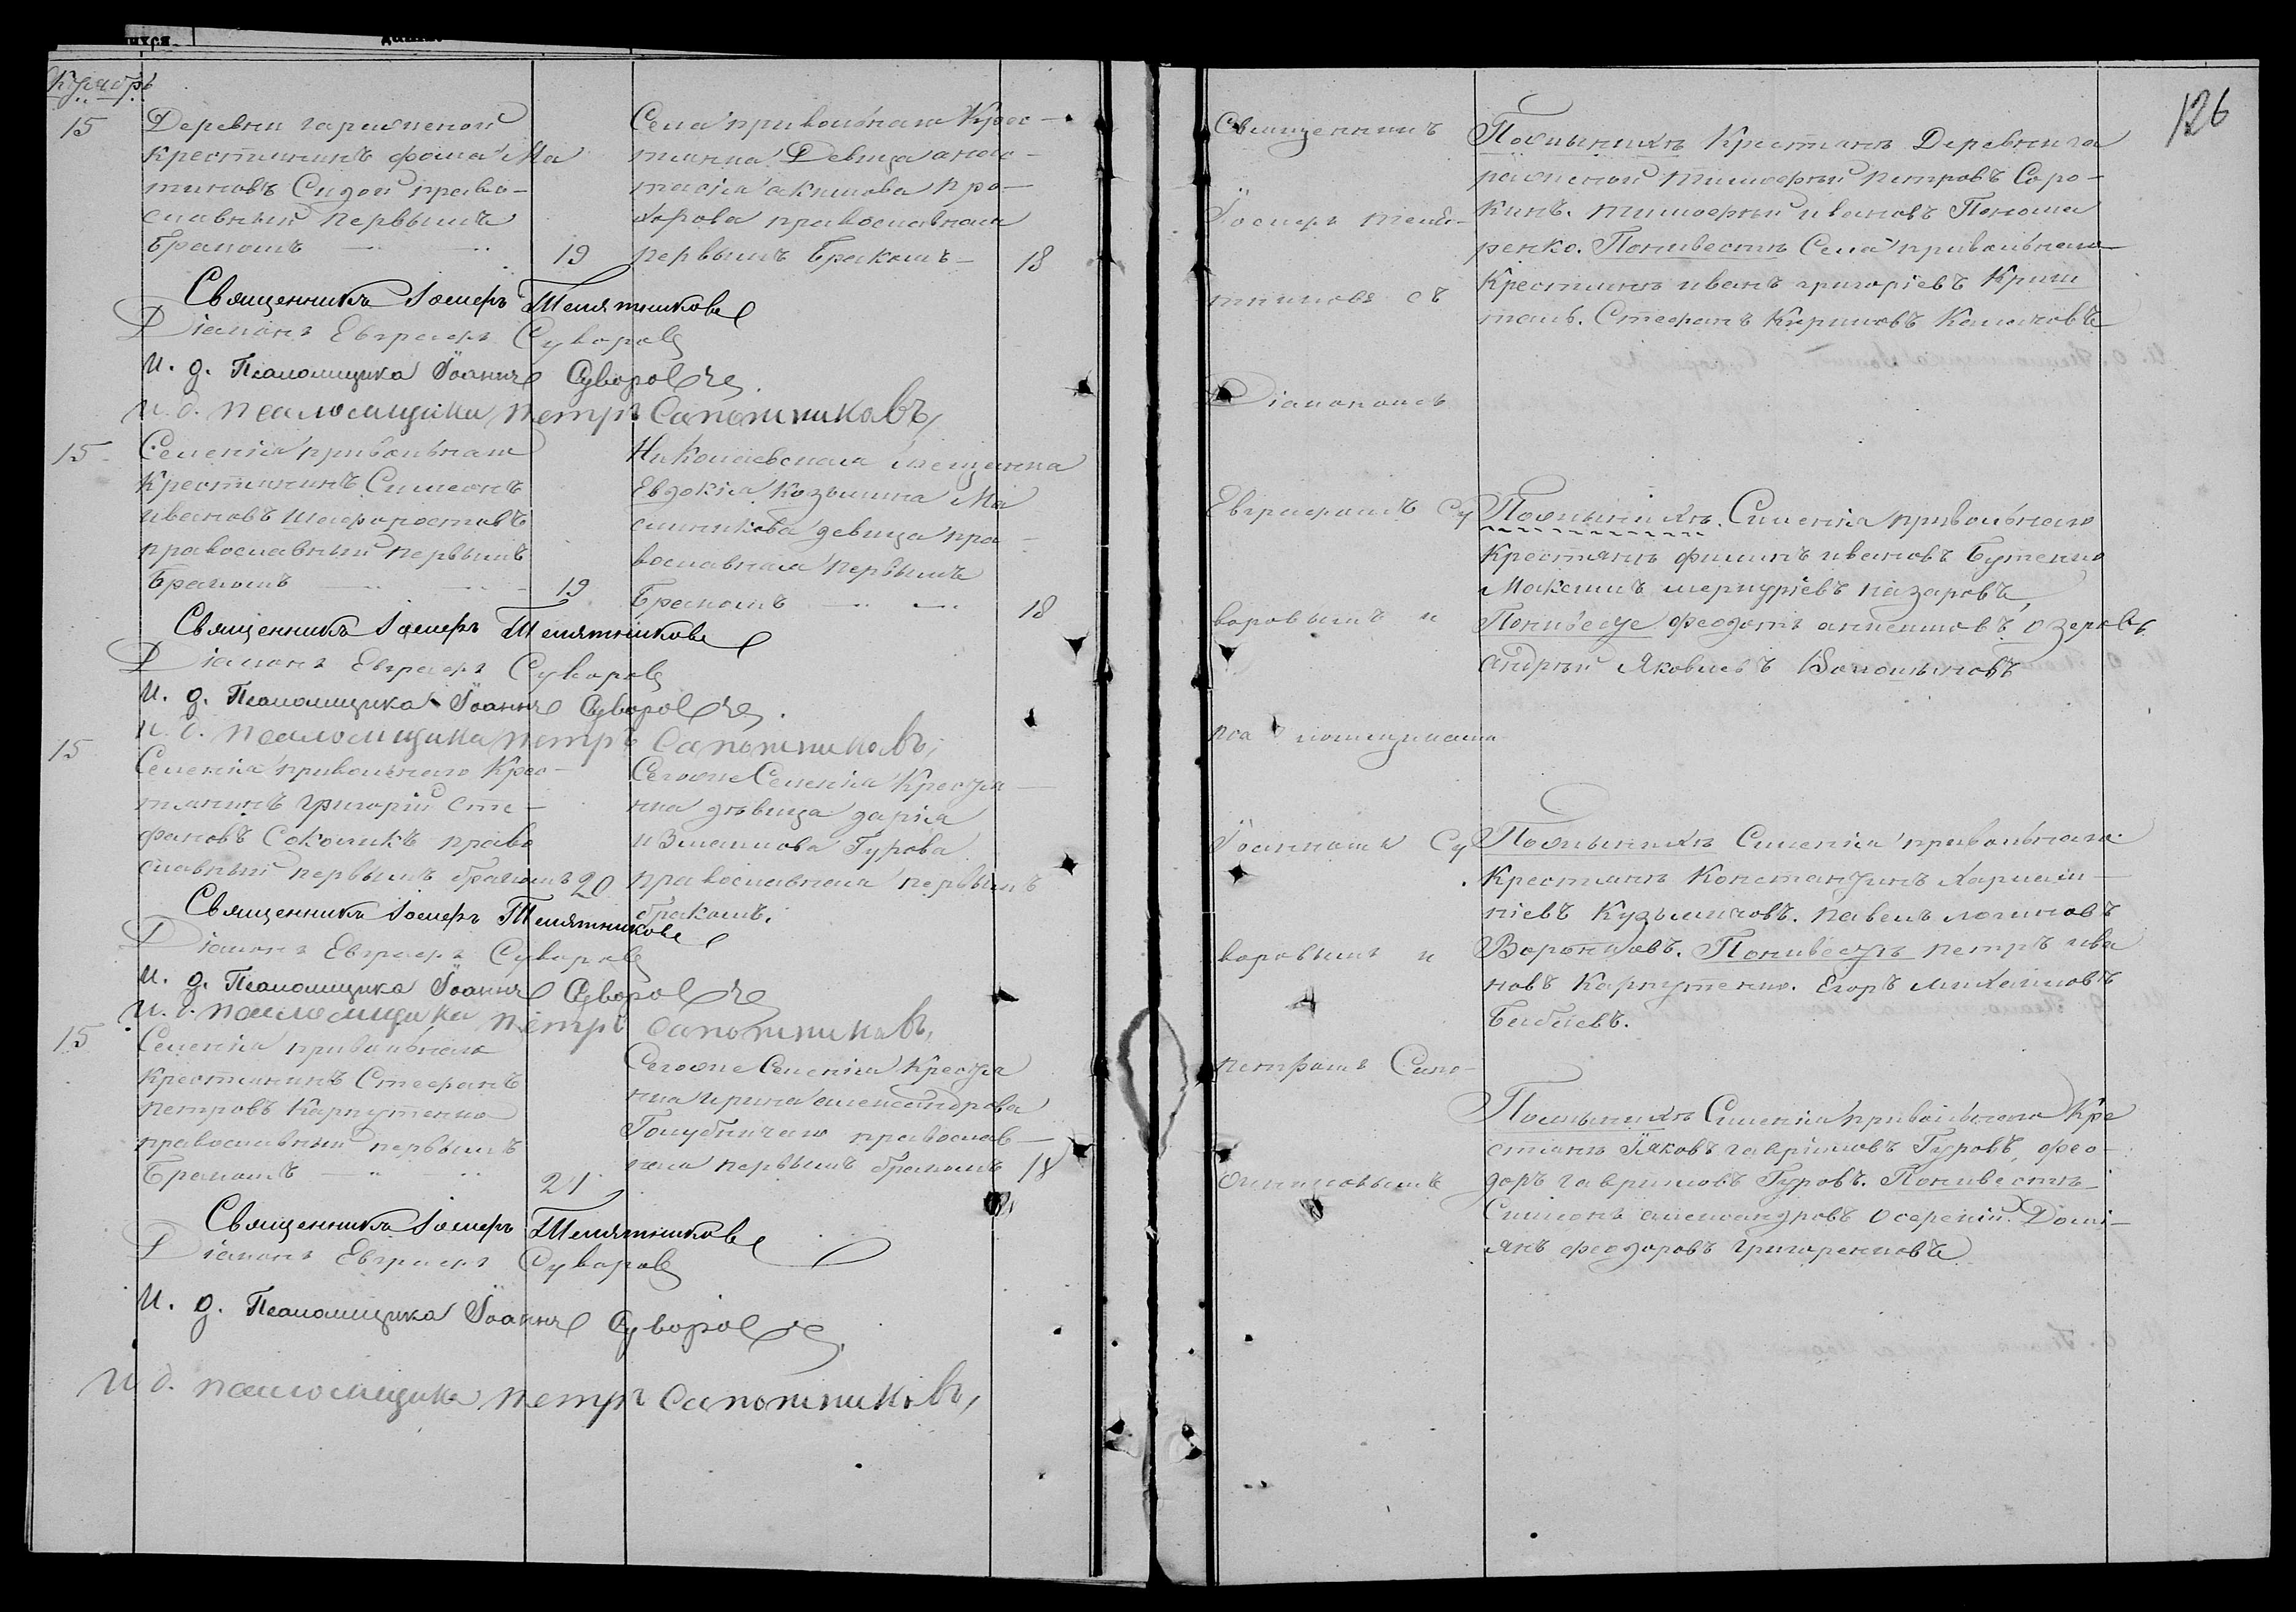 15
Деревни гарис
крестьянинъ фома Ма
тиновъ Сидой право-
славный первымъ
бракомъ
19
Села привольнаго Крес-
тьянка Девица анас-
тасіа акимова про-
хорова православная
первымъ бракомъ
18
Священникъ Іосифъ Телятниковъ
Діаконъ Евграфъ Суворовъ
И. д. Псаломщика Іоаннъ Суворовъ
И. д. псаломщика петръ Сапожниковъ
15
Селенія привольнаго
Крестьянинъ Симеонъ
ивановъ
православный первымъ
бракомъ
19
Николаевская мещанка
Евдокіа Козьмина Ма
сликова девица пра-
вославная первымъ
бракомъ
18
Священникъ Іосифъ Телятниковъ
Діаконъ Евграфъ Суворовъ
И. д. Псаломщика Іоаннъ Суворовъ
И. д. псаломщика петръ Сапожниковъ
15
Селенія привольнаго Крес-
тьянинъ григорій Сте-
фановъ Соколикъ право
славный первымъ бракомъ 20
Сегоже Селенія Крестья
нка дѣвица дарія
измаилова Гурова
православная первымъ
бракомъ.
Священникъ Іосифъ Телятниковъ
Діаконъ Евграфъ Суворовъ
И. д. Псаломщика Іоаннъ Суворовъ
И. д. псаломщика петръ Сапожниковъ
15
Селенія привольнаго
крестьянинъ Стефанъ
петровъ Карпутенко
православный первымъ
бракомъ
21
Сегоже Селенія Крестья
нка ирина александрова
православ-
ная первымъ бракомъ
18
Священникъ Іосифъ Телятниковъ
Діаконъ Евграфъ Суворовъ
И. д. Псаломщика Іоаннъ Суворовъ
И д. псаломщика петръ Сапожниковъ
126
Священникъ
Іосифъ Теля-
тниковъ съ
Діакономъ
Евграфомъ Су
воровымъ и
псаломщиками
Іоанномъ Су
воровымъ и
петромъ Сапо-
жниковымъ
По женихѣ Крестьяне Деревни га
тимофей петровъ Соро-
кинъ. тимофей ивановъ Понома
ренко. По невестѣ Села привольнаго
Крестьяне иванъ григоріевъ Криш
таль. Стефанъ Кириловъ Казаковъ
По женихѣ. Селенія привольнаго
Крестьяне филипъ ивановъ Бутенко
Максимъ меркуріевъ назаровъ,
По невесте феодотъ озеровъ
андрей Яковлевъ Волошиновъ
По женихѣ Селенія привольнаго
Крестьяне Константинъ Харлам-
піевъ Кузьмичовъ. павелъ логиновъ
Воронцовъ. По невестѣ петръ ива
новъ Карпутенко. Егоръ михаиловъ
Бабаевъ.
По женихѣ Селенія привольнаго Кре
стьяне Іяковъ гавриловъ Гуровъ, фео-
доръ гавриловъ Гуровъ. По невестѣ
Симеонъ александровъ Деми-
янъ феодоровъ григоренковъ